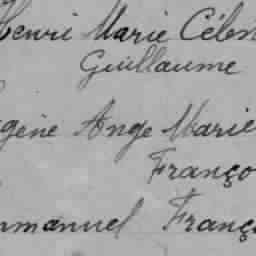 Henri Marie Célest
Guillaume
gène Ange Marie
Franço
nmanuel Franç